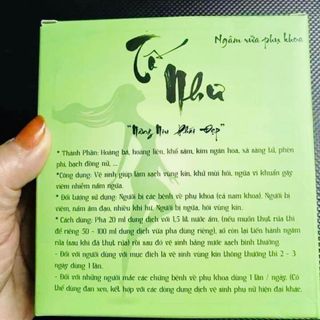 Ngâm rửa phụ khoa
Tố
Như
"Nâng Niu Phái Đẹp"
* Thành Phần: Hoàng bá, hoàng liên, khổ sâm, kim ngân hoa, xà sàng tử, phèn
phi, bạch đồng nữ, ...
*Công dụng: Vệ sinh giúp làm sạch vùng kín, khử mùi hôi, ngừa vi khuẩn gây
viêm nhiễm nấm ngứa.
* Đối tượng sử dụng: Người bị các bệnh về phụ khoa (cả nam khoa). Người bị
viêm, nấm âm đạo, nhiều khí hư. Người bị ngứa, hôi vùng kín.
* Cách dùng: Pha 20 ml dung dịch với 1,5 lít nước ấm. (nếu muốn thụt rửa thì
để riêng 50 - 100 ml dung dịch vừa pha dùng riêng), số còn lại tiến hành ngâm
rửa (sau khi đã thụt rửa) rồi sau đó vệ sinh bằng nước sạch bình thường.
- Đối với người dùng với mục đích là vệ sinh vùng kín thông thường thì 2 - 3
ngày dùng 1 lần.
- Đối với những người mắc các chứng bệnh về phụ khoa dùng 1 lần / ngày. (Có
thể dùng đan xen, kết hợp với các dòng dung dịch vệ sinh phụ nữ hiện đại khác.